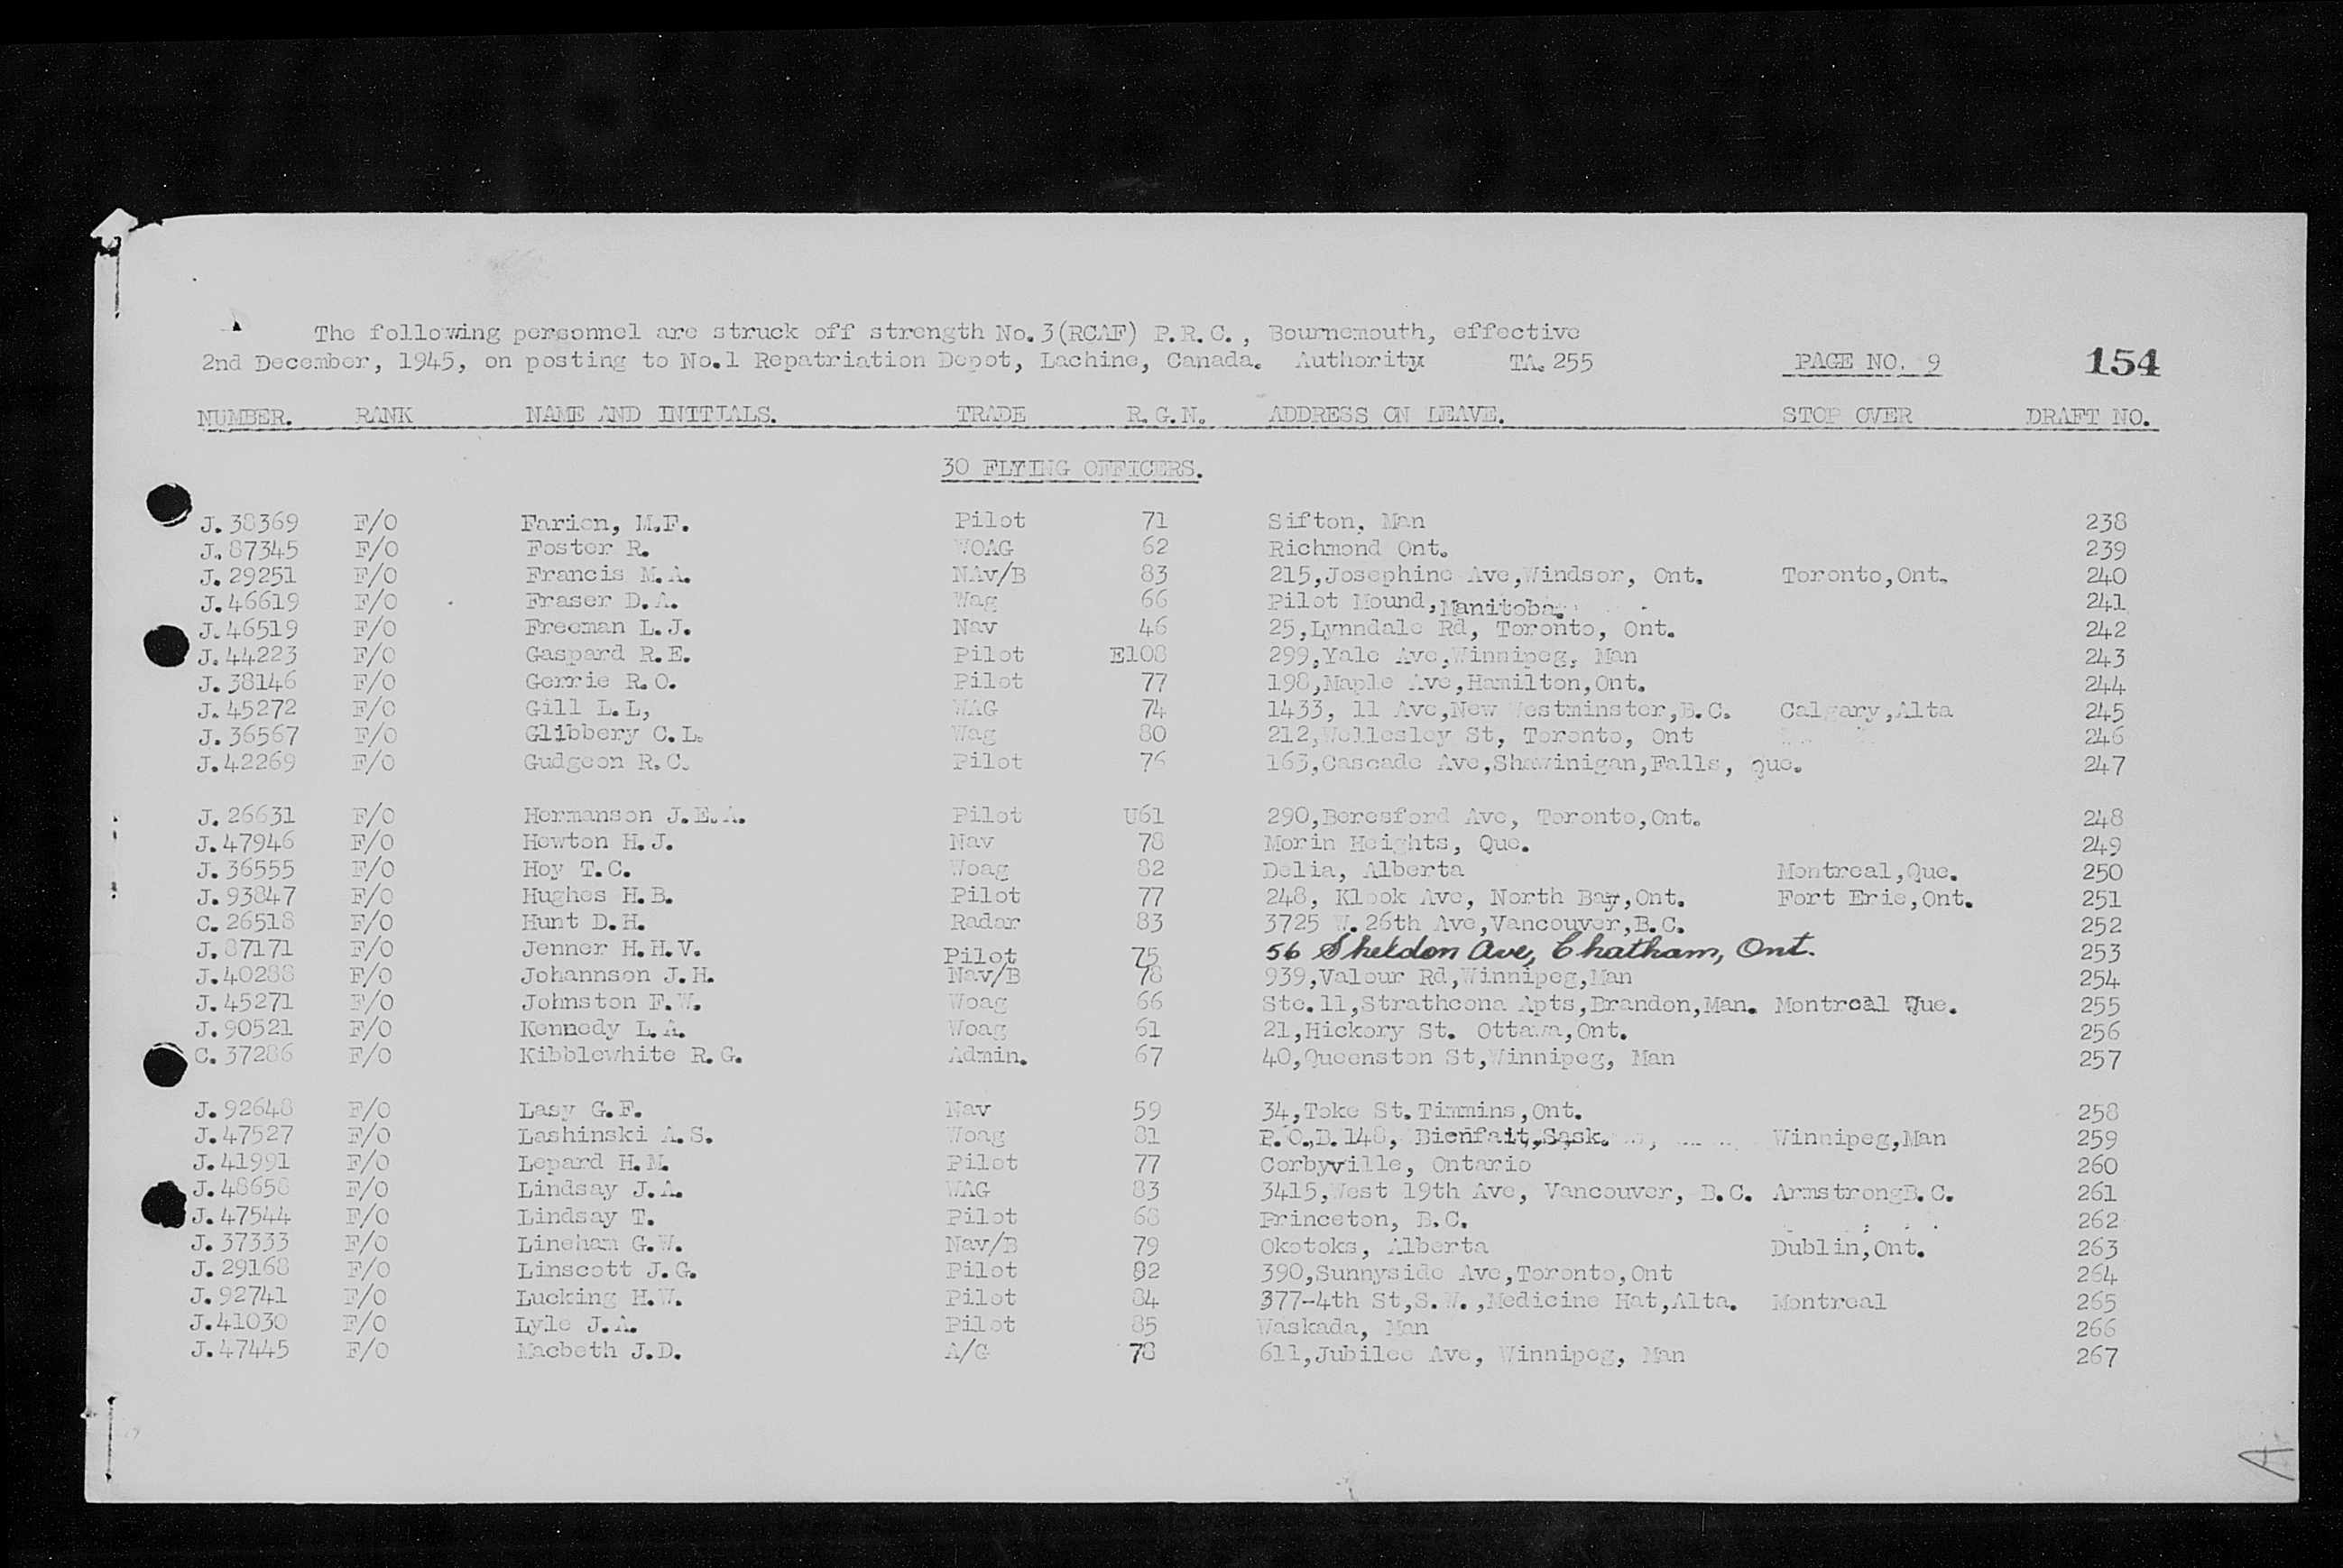 The following personnel are struck off strength No.3(RCAF) P.R.C., Bournemouth, effective
2nd December, 1945, on posting to No.1 Repatriation Depot, Lachine, Canada. Authority TA.255 PAGE NO. 9 154
NUMBER. RANK NAME AND INITIALS. TRADE R.G.N. ADDRESS ON LEAVE. STOP OVER DRAFT NO.
30 FLYING OFFICERS.
J.38369 F/O Farion, M.F. Pilot 71 Sifton, Man 238
J.87345 F/O Foster R. WOAG 62 Richmond Ont. 239
J.29251 F/O Francis M.A. NAv/B 83 215,Josephine Ave,Windsor, Ont. Toronto,Ont. 240
J.46619 F/O Fraser D.A. Wag 66 Pilot Mound,Manitoba. 241
J.46519 F/O Freeman L.J. Nav 46 25,Lynndale Rd, Toronto, Ont. 242
J.44223 F/O Gaspard R.E. Pilot E108 299,Yale Ave,Winnipeg, Man 243
J.38146 F/O Gerrie R.O. Pilot 77 198,Maple Ave,Hamilton,Ont. 244
J.45272 F/O Gill L.L, WAG 74 1433, 11 Ave,New Westminster,B.C. Calgary,Alta 245
J.36567 F/O Glibbery C.L. Wag 80 212,Wellesley St, Toronto, Ont 246
J.42269 F/O Gudgeon R.C. Pilot 76 163,Cascade Ave,Shawinigan,Falls, Que. 247
J.26631 F/O Hermanson J.E.A. Pilot U61 290,Beresford Ave, Toronto,Ont. 248
J.47946 F/O Howton H.J. Nav 78 Morin Heights, Que. 249
J.36555 F/O Hoy T.C. Woag 82 Delia, Alberta Montreal,Que. 250
J.93847 F/O Hughes H.B. Pilot 77 248, Klook Ave, North Bay,Ont. Fort Erie,Ont. 251
C.26518 F/O Hunt D.H. Radar 83 3725 W.26th Ave,Vancouver,B.C. 252
J.87171 F/O Jenner H.H.V. Pilot 75 56 Sheldon Ave, Chatham, Ont. 253
J.40288 F/O Johannson J.H. Nav/B 78 939,Valour Rd,Winnipeg,Man 254
J.45271 F/O Johnston F.W. Woag 66 Ste.11,Strathcona Apts,Brandon,Man. Montreal Que. 255
J.90521 F/O Kennedy L.A. Woag 61 21,Hickory St. Ottawa,Ont. 256
C.37286 F/O Kibblewhite R.G. Admin. 67 40,Queenston St,Winnipeg, Man 257
J.92648 F/O Lasy G.F. Nav 59 34,Toke St.Timmins,Ont. 258
J.47527 F/O Lashinski A.S. Woag 81 P.O.,B.148, Bienfait,Sask. Winnipeg,Man 259
J.41991 F/O Lepard H.M. Pilot 77 Corbyville, Ontario 260
J.48658 F/O Lindsay J.A. WAG 83 3415,West 19th Ave, Vancouver, B.C. ArmstrongB.C. 261
J.47544 F/O Lindsay T. Pilot 68 Princeton, B.C. 262
J.37333 F/O Lineham G.W. Nav/B 79 Okotoks, Alberta Dublin,Ont. 263
J.29168 F/O Linscott J.G. Pilot 92 390,Sunnyside Ave,Toronto,Ont 264
J.92741 F/O Lucking H.W. Pilot 84 377-4th St,S.W.,Medicine Hat,Alta. Montreal 265
J.41030 F/O Lyle J.A. Pilot 85 Waskada, Man 266
J.47445 F/O Macbeth J.D. A/G 78 611,Jubilee Ave, Winnipeg, Man 267
A